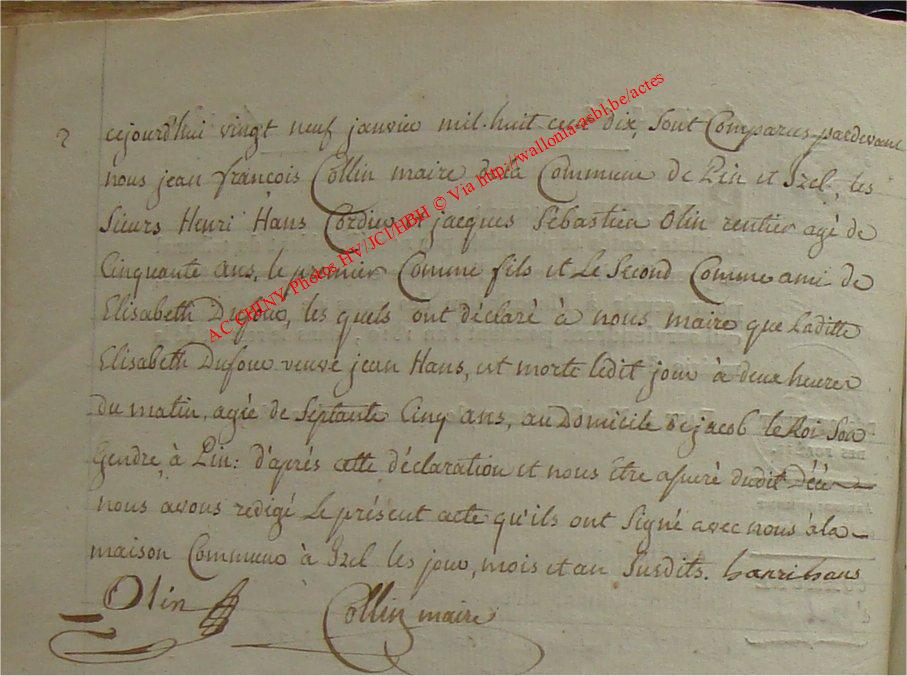 2 cejourd'hui vingt neuf janvier mil-huit cent dix, sont Comparus pardevant
nous jean françois Collin maire de la Commune de Pin et Izel, les
Sieurs Henri Hans Cordier et jacques Sebastien Olin rentier agé de
Cinquante ans, le premier Comme fils et Le Second Comme ami de
Elisabeth Dufour, les quels ont déclaré à nous maire que Laditte
Elisabeth Dufour veuve jean Hans, est morte ledit jour à deux heures
du matin, agée de Septante Cinq ans, au Domicile de jacob le Roi Son
Gendre à Pin: d'aprés cette déclaration et nous être assuré dudit Décé
nous avons redigé Le présent acte qu'ils ont Signé avec nous à la
maison Commune à Izel les jour, mois et an Susdits. henri hans
Olin Collin maire
AC CHINY Photos HV/JCI/HBH © Via http://wallonia-asbl.be/actes